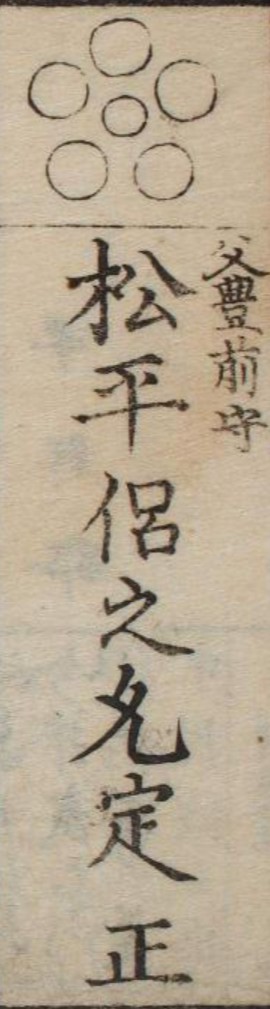 父豊前守
松平侶之允定正